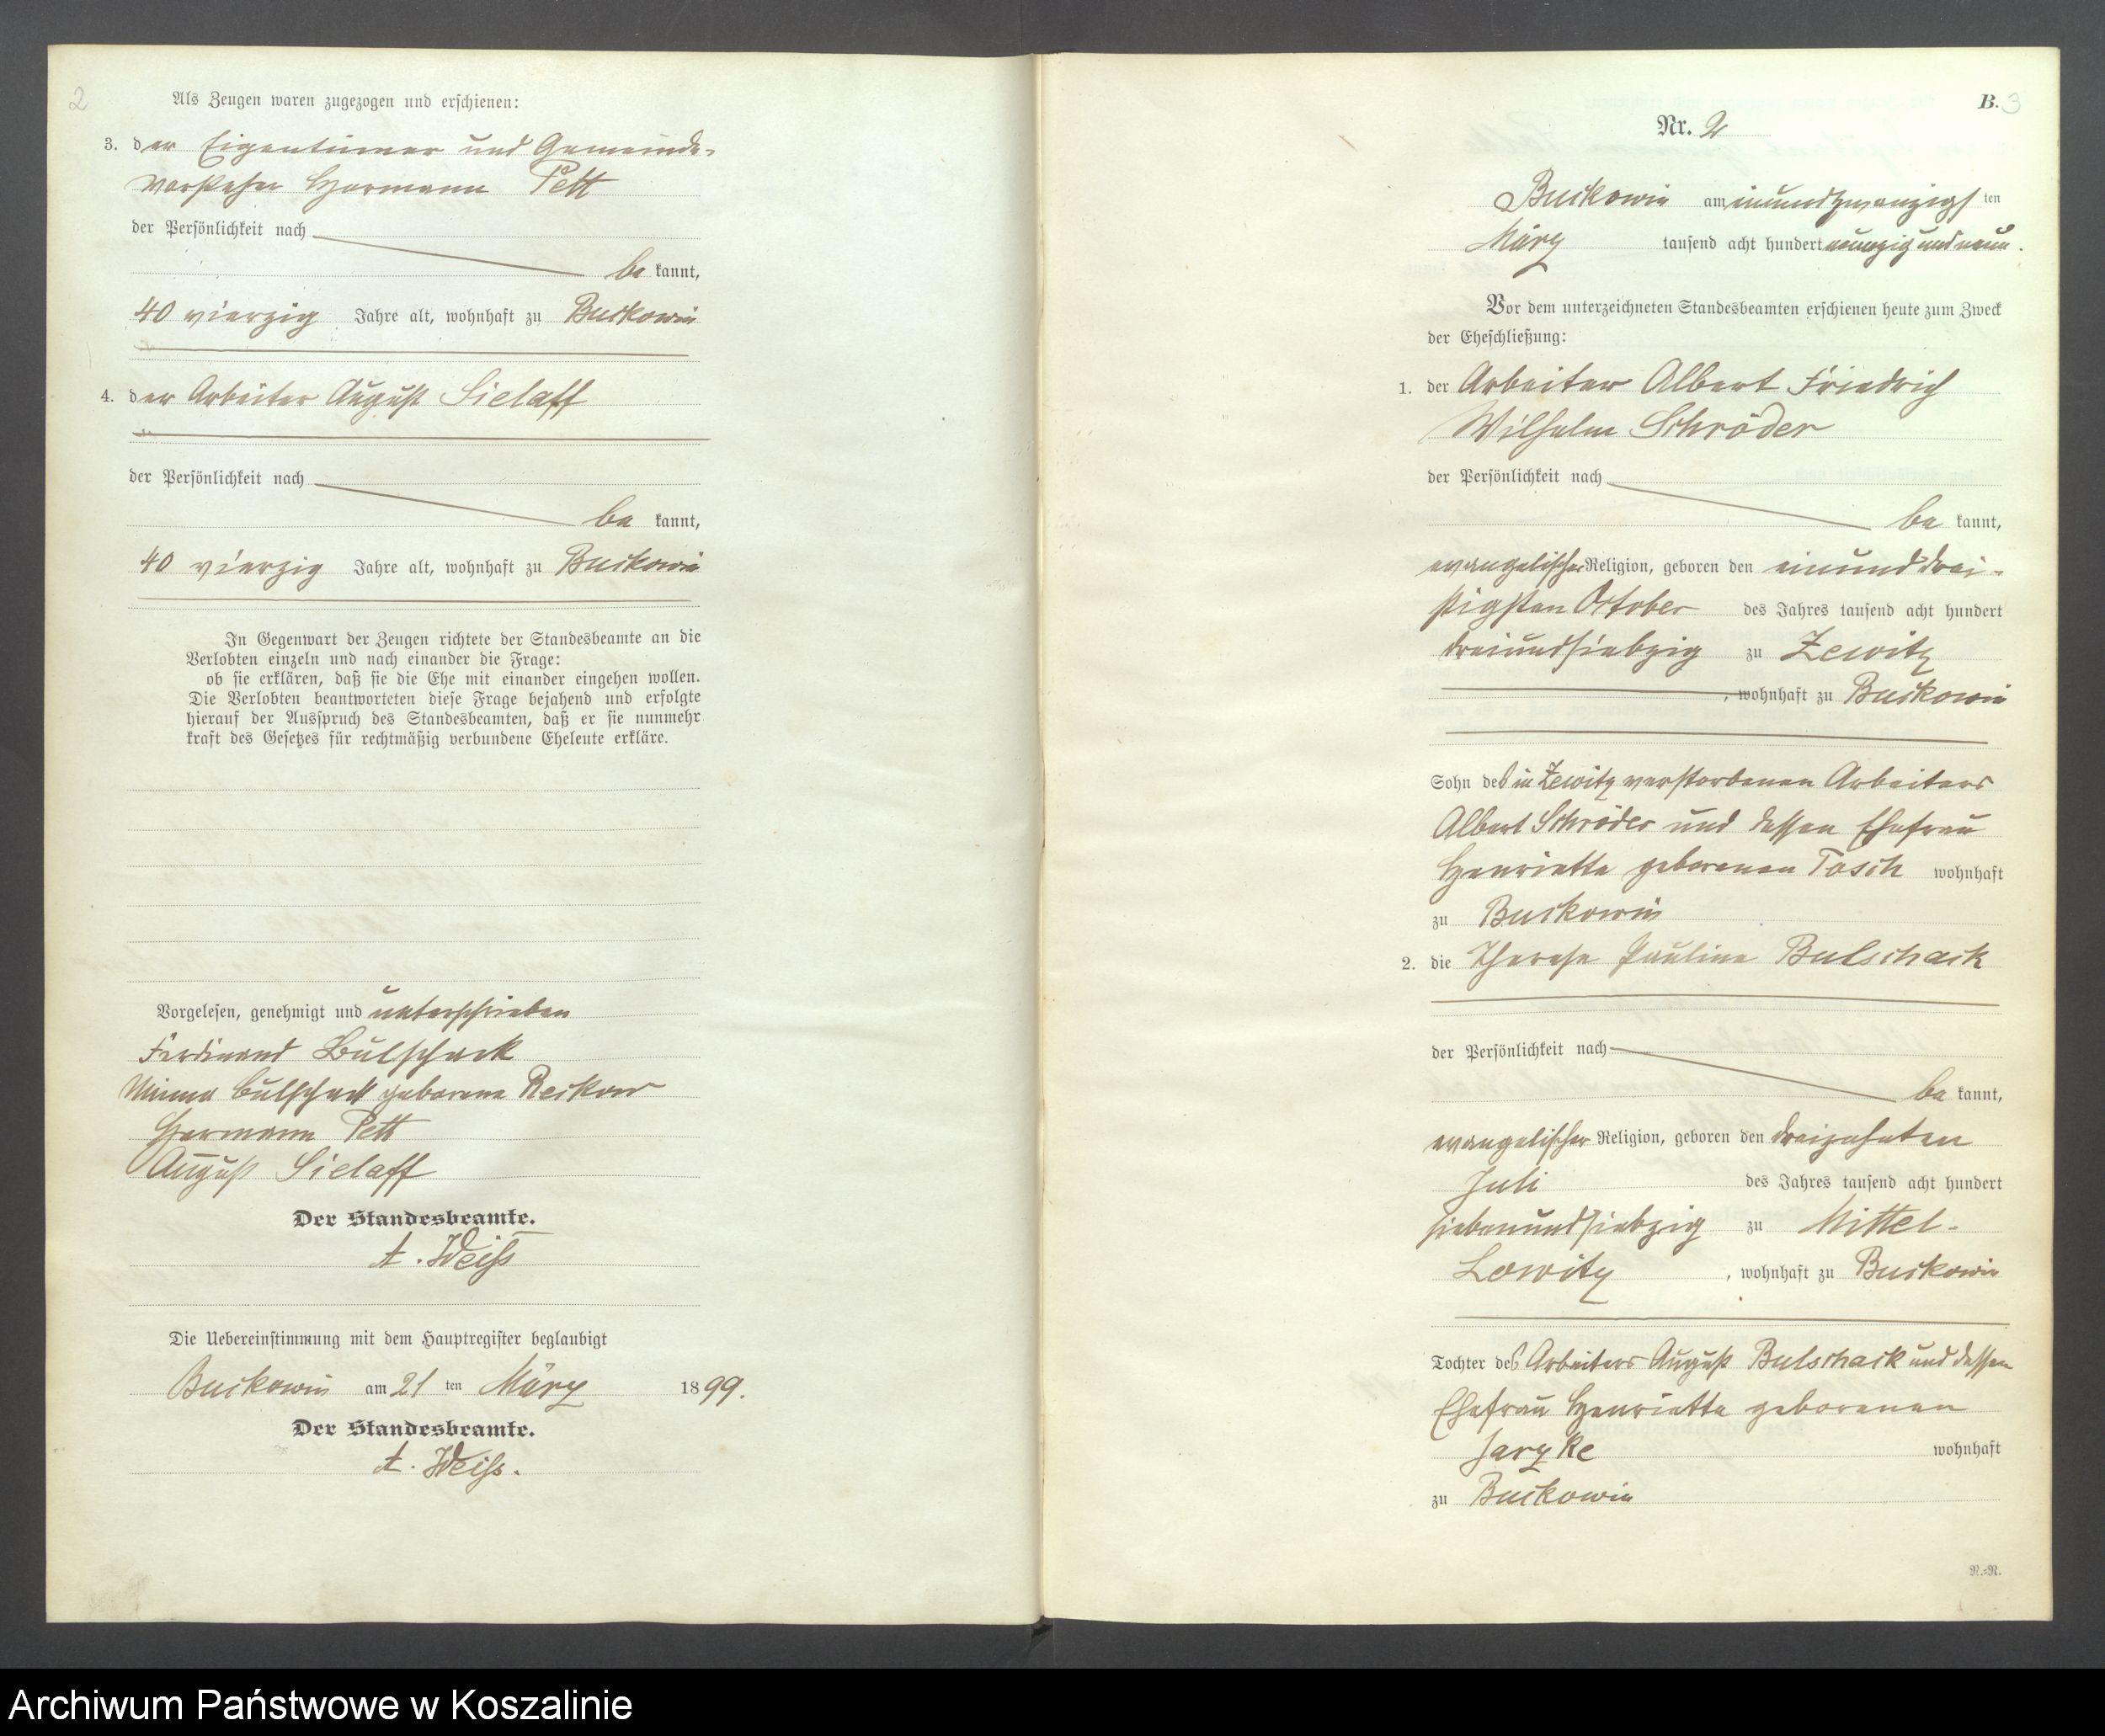 2
Als Zeugen waren zugezogen und erschienen:
3. der Eigentümer und Gemeinde-
vorsteher Hermann Pett
der Persönlichkeit nach
be kannt,
40 vierzig Jahre alt, wohnhaft zu Buckowin
4. der Arbeiter August Sielaff
der Persönlichkeit nach
be kannt,
40 vierzig Jahre alt, wohnhaft zu Buckowin
In Gegenwart der Zeugen richtete der Standesbeamte an die
Verlobten einzeln und nach einander die Frage:
ob sie erklären, daß sie die Ehe mit einander eingehen wollen.
Die Verlobten beantworteten diese Frage bejahend und erfolgte
hierauf der Ausspruch des Standesbeamten, daß er sie nunmehr
kraft des Gesetzes für rechtmäßig verbundene Eheleute erkläre.
Vorgelesen, genehmigt und unterschrieben
Ferdinand Bulschack
Minna Bulschack geborene Reckow
Hermann Pett
August Sielaff
Der Standesbeamte.
A. Weiss
Die Uebereinstimmung mit dem Hauptregister beglaubigt
Buckowin am 21 ten März 1899.
Der Standesbeamte.
A. Weiss.
B. 3
Nr. 2
Buckowin am einundzwanzigsten
März tausend acht hundert neunzig und neun.
Vor dem unterzeichneten Standesbeamten erschienen heute zum Zweck
der Eheschließung:
1. der Arbeiter Albert Friedrich
Wilhelm Schröder
der Persönlichkeit nach
be kannt,
evangelischer Religion, geboren den einunddrei-
ßigsten October des Jahres tausend acht hundert
dreiundsiebzig zu Zewitz
, wohnhaft zu Buckowin
Sohn des in Zewitz verstorbenen Arbeiters
Albert Schröder und dessen Ehefrau
Henriette geborenen Tosch wohnhaft
zu Buckowin
2. die Therese Pauline Bulschack
der Persönlichkeit nach
be kannt,
evangelischer Religion, geboren den dreizehnten
Juli des Jahres tausend acht hundert
siebenundsiebzig zu Mittel-
Lowitz, wohnhaft zu Buckowin
Tochter des Arbeiters August Bulschack und dessen
Ehefrau Henriette geborenen
Jarzke wohnhaft
zu Buckowin
N.=N.
Archiwum Państwowe w Koszalinie